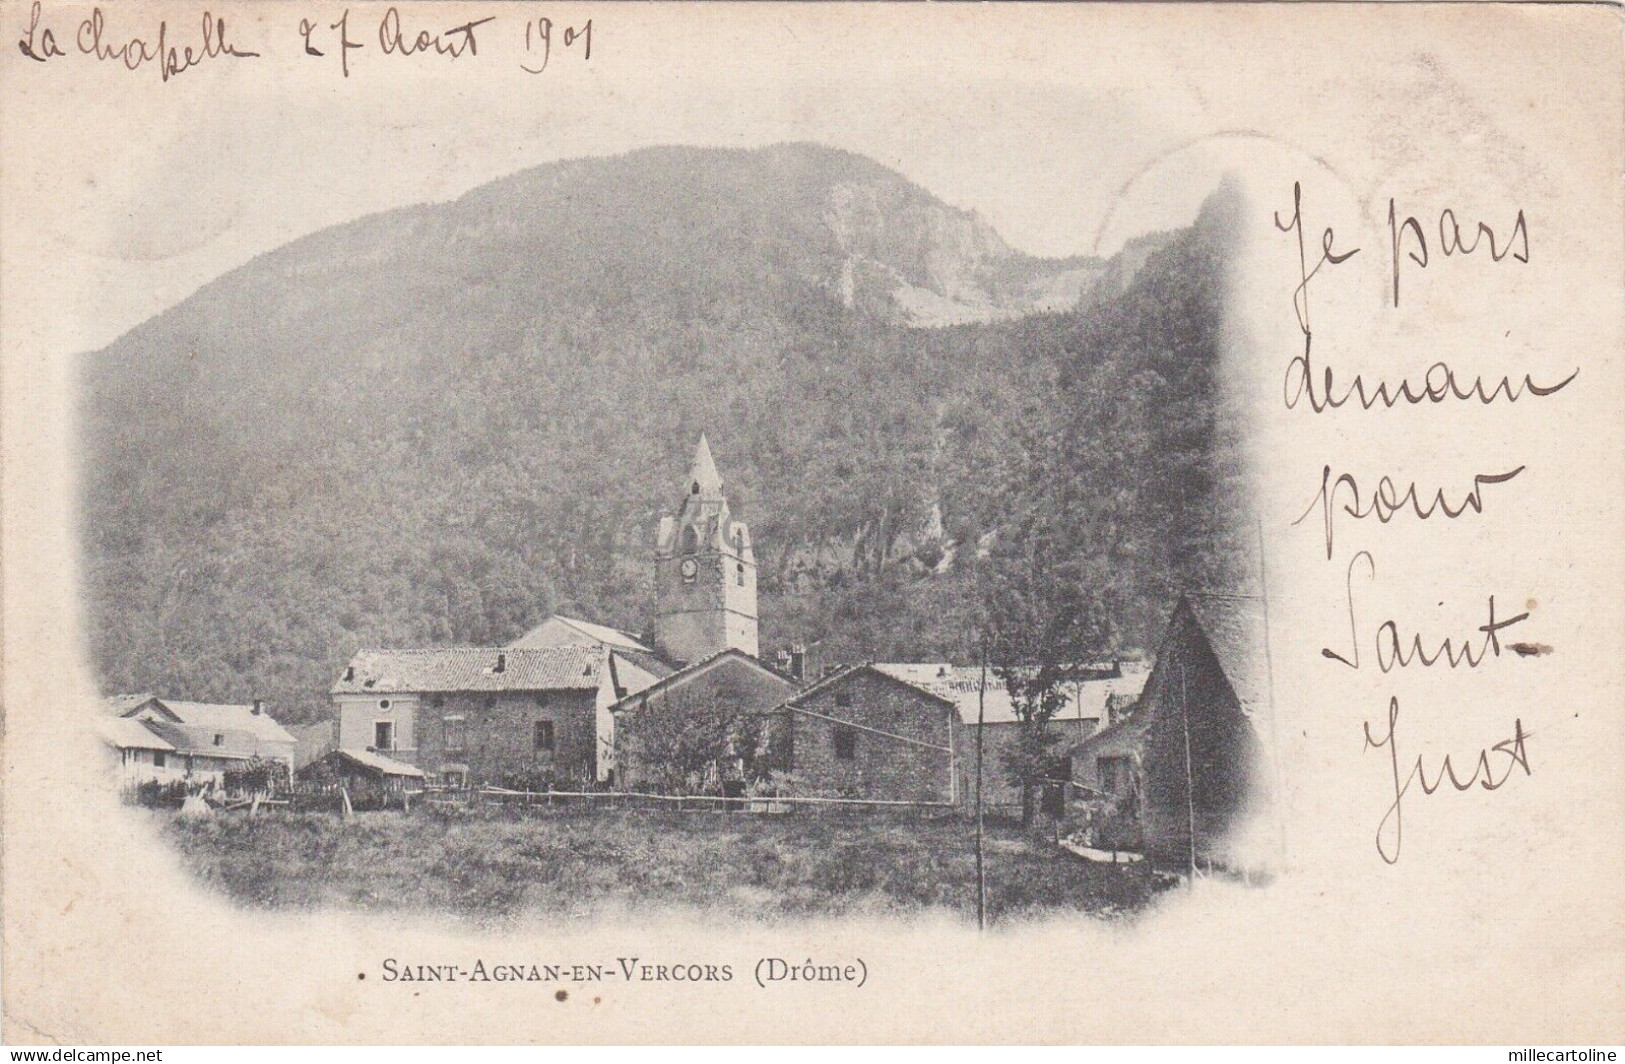 La Chapelle 27 Aout 1901
Je pars
demain
pour
Saint-
Just
SAINT-AGNAN-EN-VERCORS (Drôme)
https://www.delcampe.net
millecartoline